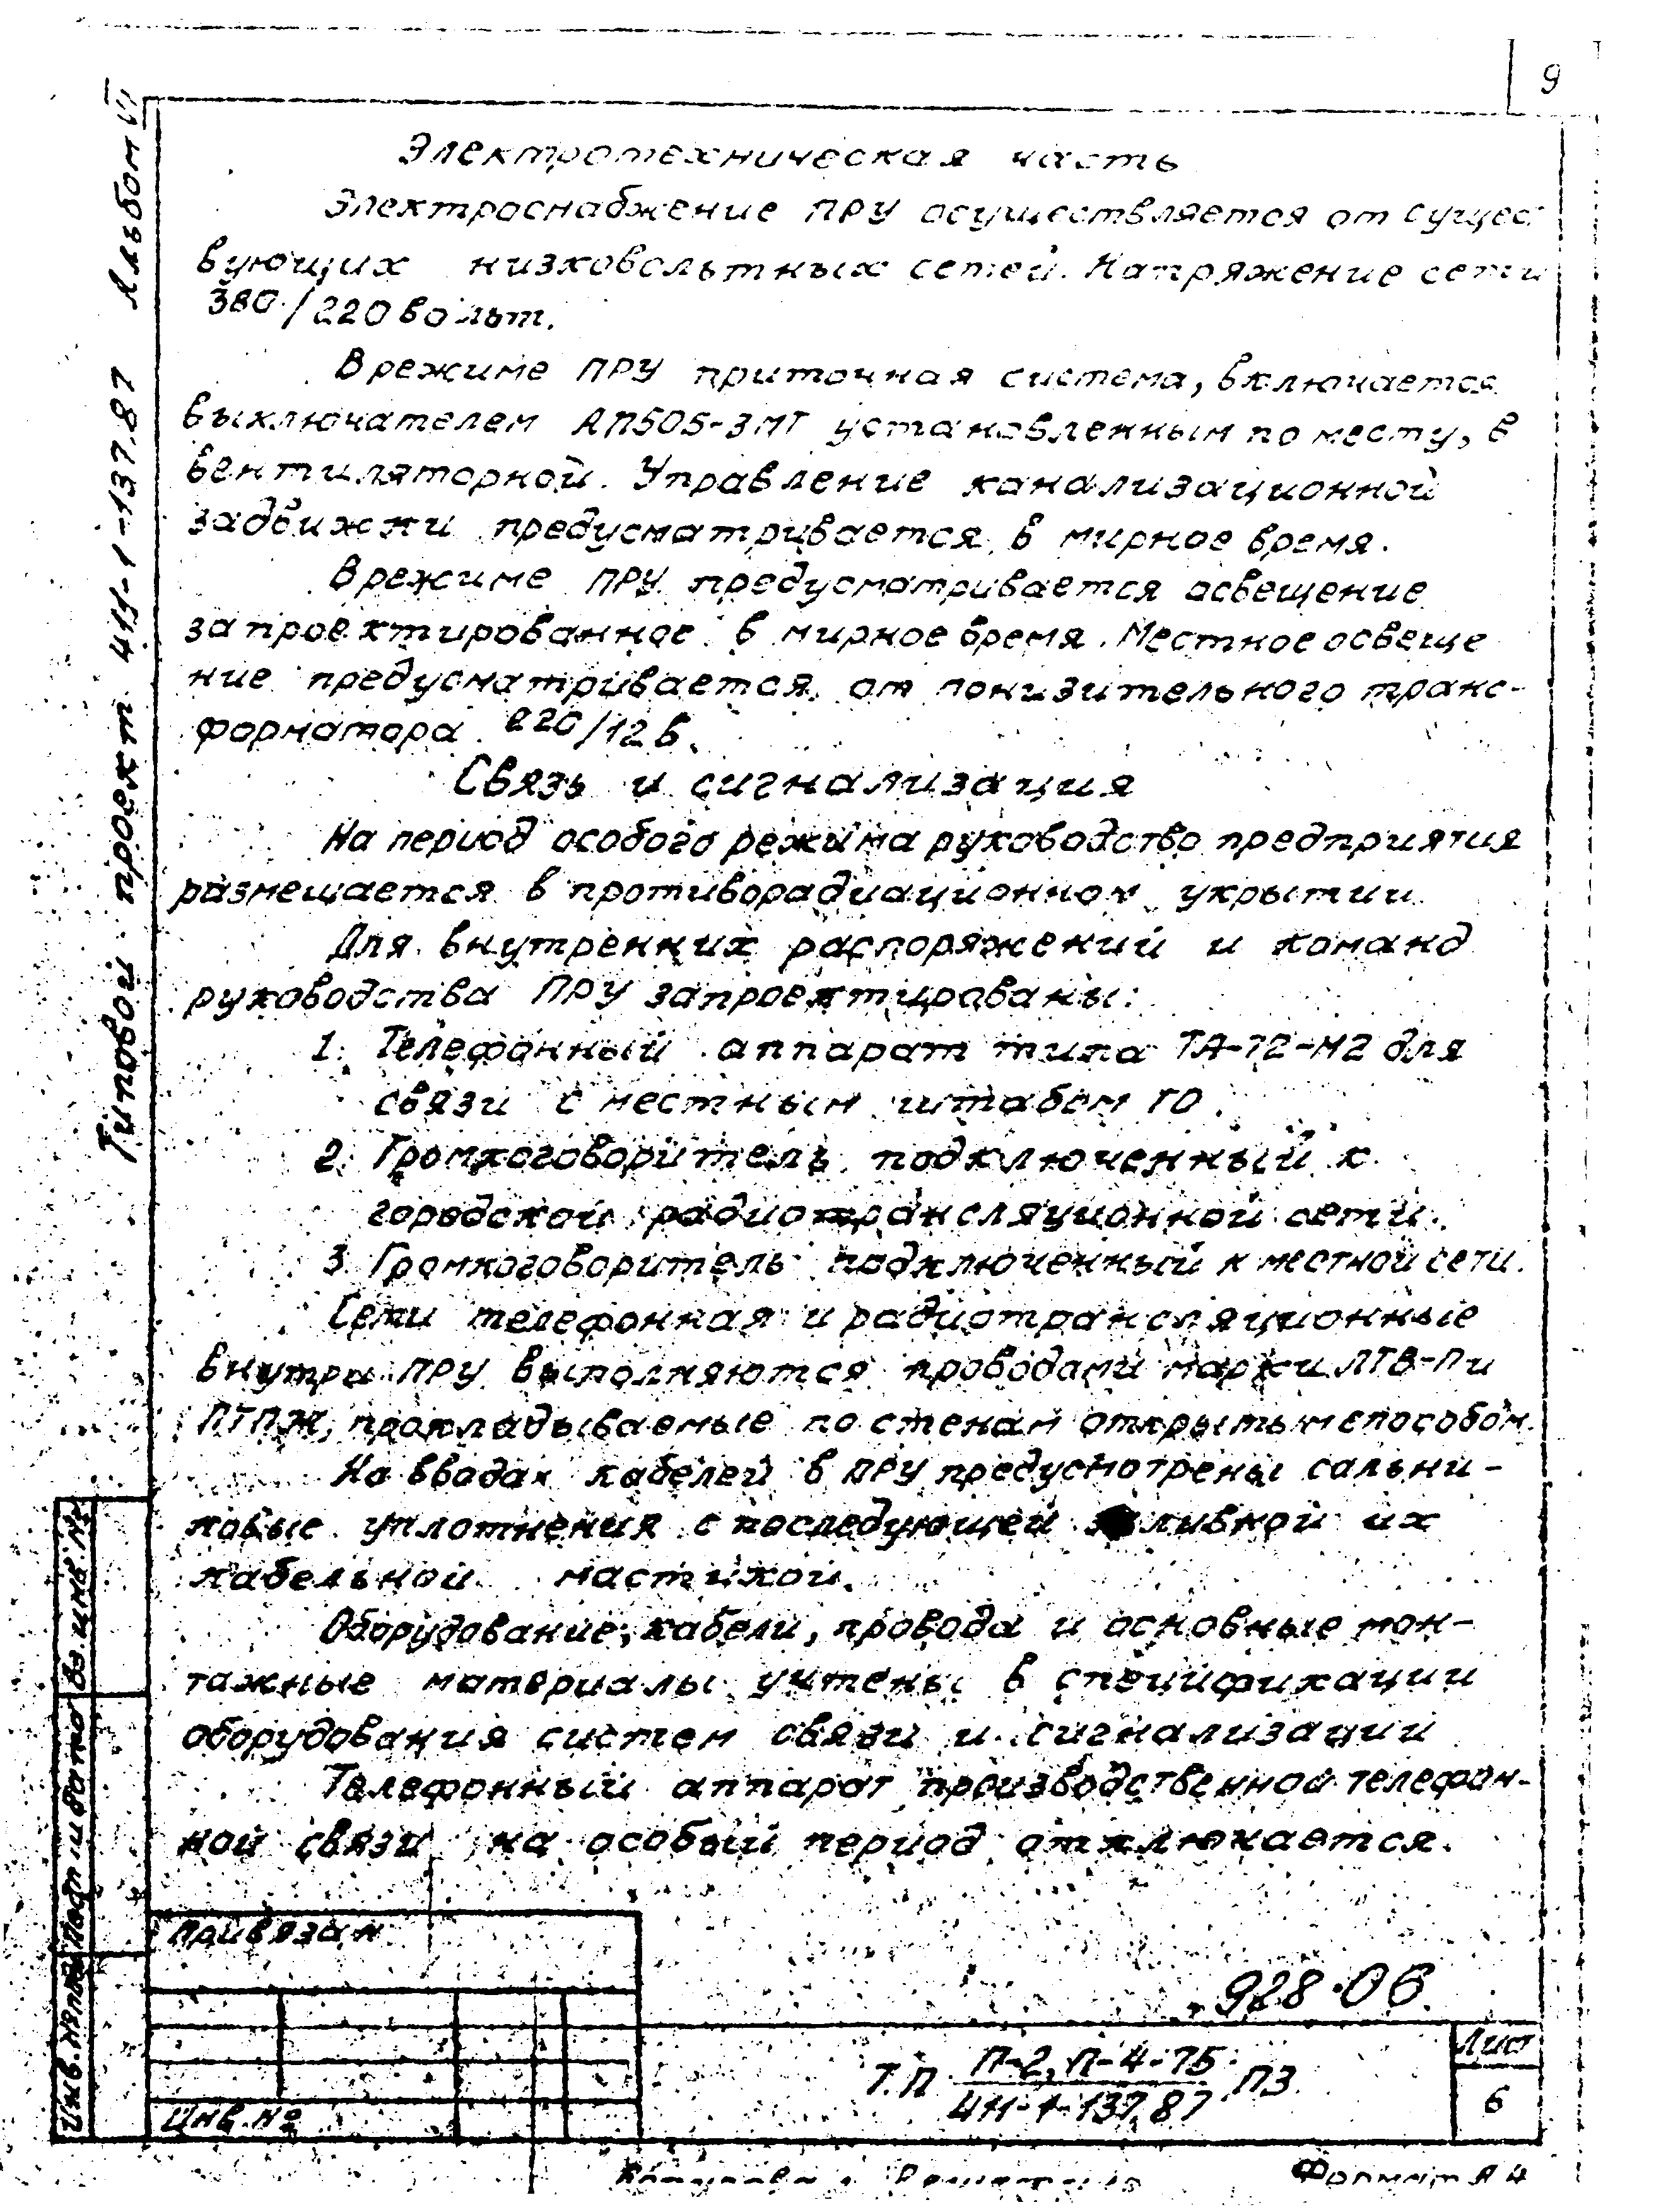 9
Электротехническая часть
Электроснабжение ПРУ осуществляется от сущес
вующих низковольтных сетей. Напряжение сети
380/220 вольт.
В режиме ПРУ приточная система, включается
выключателем АП50Б-3МТ установленным по месту, в
вентиляторной. Управление канализационной
задвижки предусматривается в мирное время.
В режиме ПРУ предусматривается освещение
запроектированное в мирное время. Местное освеще
ние предусматривается от понизительного транс-
форматора 220/12 в.
Связь и сигнализация
На период особого режима руководство предприятия
размещается в противорадиационном укрытии
Для внутренних распоряжений и команд
руководства ПРУ запроектированы:
1. Телефонный аппарат типа ТА-72-М2 для
связи с местным штабом ГО.
2. Громкоговоритель подключенный к
городской радиотрансляционной сети.
3. Громкоговоритель подключенный к местной сети.
Сети телефонная и радиотрансляционные
внутри ПРУ выполняются проводами марки ЛТВ-П и
ПТПЖ, прокладываемые по стенам открытым способом.
На вводах кабелей в ПРУ предусмотрены сальни-
ковые уплотнения с последующей заливкой их
кабельной мастикой.
Оборудование, кабели, провода и основные мон-
тажные материалы учтены в спецификации
оборудования систем связи и сигнализации
Телефонный аппарат производственной телефон-
ной связи на особый период отключается.
Типовой проект 411-1-137.87 Альбом VI
Вз. инв. №
Подп. и дата
Инв. № подл
Привязан
Инв. №
928-06
Т.П. П-2, П-4-75 ПЗ
411-1-137.87
Лист
6
Формат А4